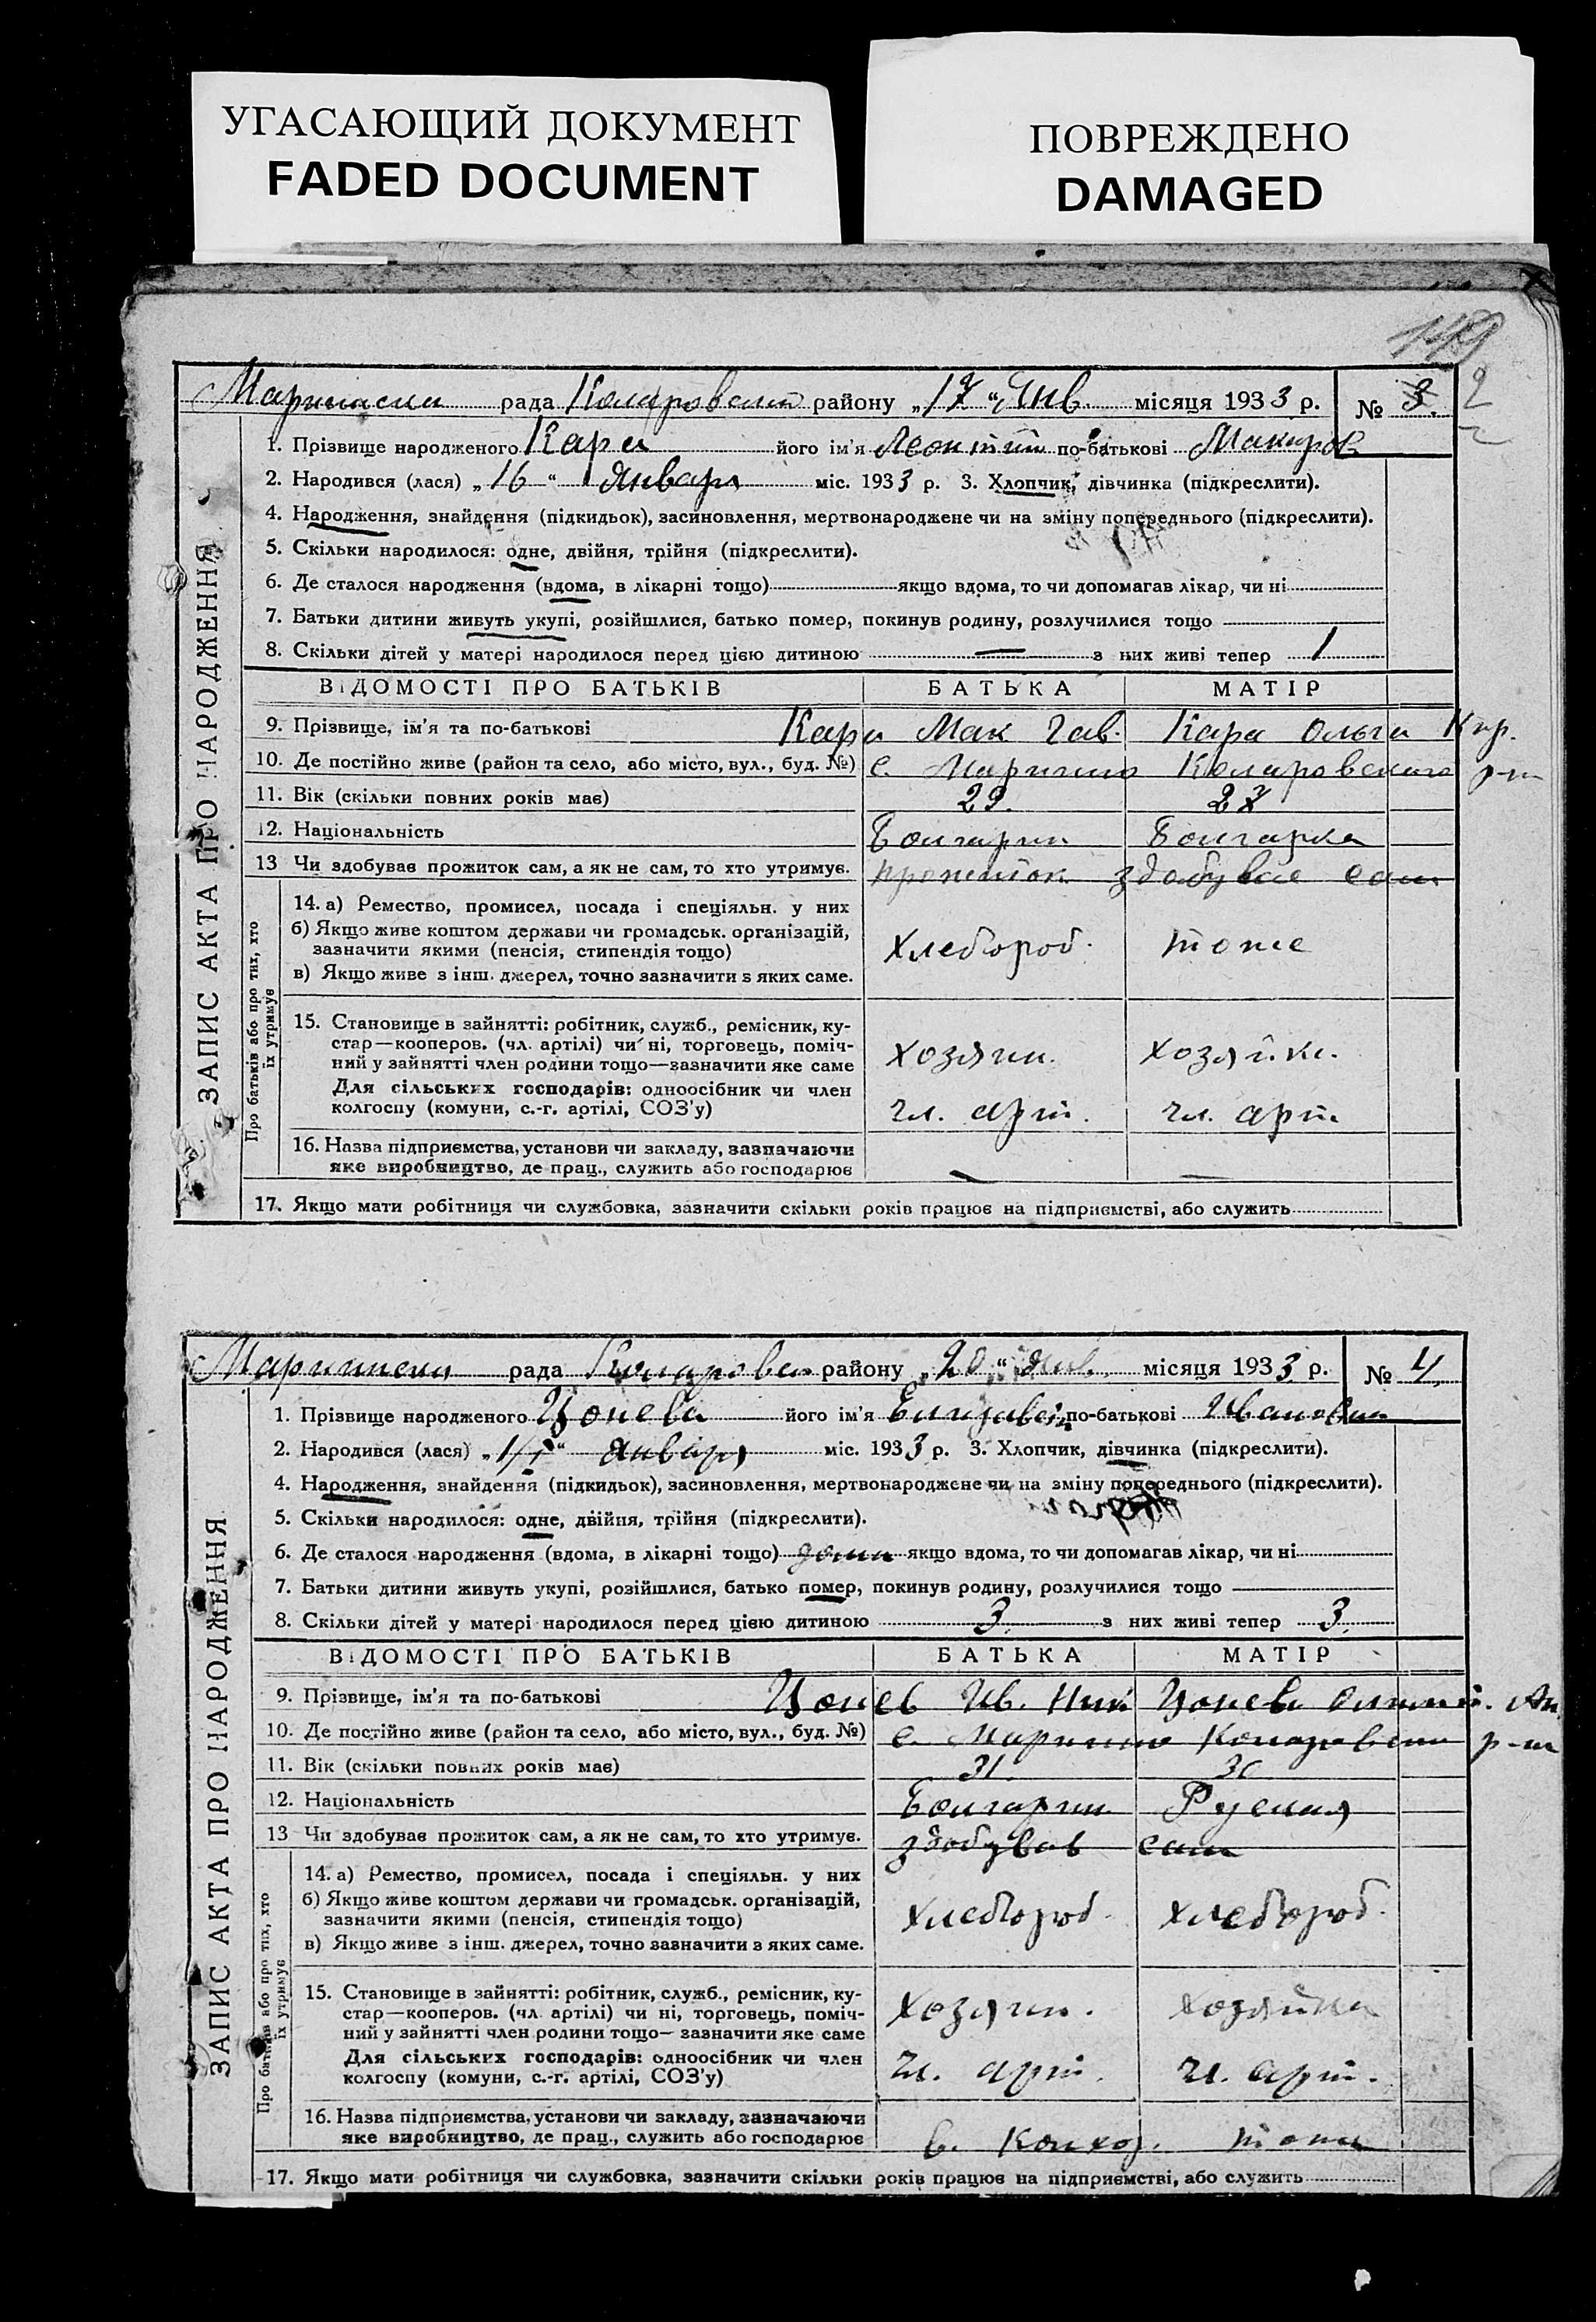 УГАСАЮЩИЙ ДОКУМЕНТ
FADED DOCUMENT
ПОВРЕЖДЕНО
DAMAGED
ЗАПИС АКТА ПРО НАРОДЖЕННЯ
рада Коларовский району „17“ Янв. місяця 1933 р. № 3.
2
1. Прізвище народженого Кара його ім'я Леонтий по-батькові Макаров
2. Народився (лася) „16“ Января міс. 1933 р. 3. Хлопчик, дівчинка (підкреслити).
4. Народження, знайдення (підкидьок), засиновлення, мертвонароджене чи на зміну попереднього (підкреслити).
5. Скільки народилося: одне, двійня, трійня (підкреслити).
6. Де сталося народження (вдома, в лікарні тощо) якщо вдома, то чи допомагав лікар, чи ні
7. Батьки дитини живуть укупі, розійшлися, батько помер, покинув родину, розлучилися тощо
8. Скільки дітей у матері народилося перед цією дитиною — з них живі тепер 1
ВІДОМОСТІ ПРО БАТЬКІВ БАТЬКА МАТІР
9. Прізвище, ім'я та по-батькові Кара Мак Гав. Кара Ольга Кир.
10. Де постійно живе (район та село, або місто, вул., буд. №) с. Марино Коларовского р-на
11. Вік (скільки повних років має) 29. 27
12. Національність Болгарин Болгарка
13 Чи здобував прожиток сам, а як не сам, то хто утримує. прожиток здобувае сам
Про батьків або про тих, хто їх утримує
14. а) Ремество, промисел, посада і спеціяльн. у них
б) Якщо живе коштом держави чи громадськ. організацій,
зазначити якими (пенсія, стипендія тощо) Хлебороб. тоже
в) Якщо живе з інш. джерел, точно зазначити з яких саме.
15. Становище в зайнятті: робітник, служб., ремісник, ку-
стар—кооперов. (чл. артілі) чи ні, торговець, поміч- хозяин. хозяйка.
ний у зайнятті член родини тощо—зазначити яке саме
Для сільських господарів: одноосібник чи член
колгоспу (комуни, с.-г. артілі, СОЗ'у) чл. арт. чл. арт.
16. Назва підприємства, установи чи закладу, зазначаючи
яке виробництво, де прац., служить або господарює — —
17. Якщо мати робітниця чи службовка, зазначити скільки років працює на підприємстві, або служить
ЗАПИС АКТА ПРО НАРОДЖЕННЯ
рада району „20“ Янв. місяця 1933 р. № 4.
1. Прізвище народженого Цонева його ім'я Елизавет по-батькові Ивановна
2. Народився (лася) Января міс. 1933 р. 3. Хлопчик, дівчинка (підкреслити).
4. Народження, знайдення (підкидьок), засиновлення, мертвонароджене чи на зміну попереднього (підкреслити).
5. Скільки народилося: одне, двійня, трійня (підкреслити).
6. Де сталося народження (вдома, в лікарні тощо) дома якщо вдома, то чи допомагав лікар, чи ні
7. Батьки дитини живуть укупі, розійшлися, батько помер, покинув родину, розлучилися тощо
8. Скільки дітей у матері народилося перед цією дитиною 3. з них живі тепер 3.
ВІДОМОСТІ ПРО БАТЬКІВ БАТЬКА МАТІР
9. Прізвище, ім'я та по-батькові Цонев Ив. Ник Цонева
10. Де постійно живе (район та село, або місто, вул., буд. №) с. Марино р-на
11. Вік (скільки повних років має) 31. 30
12. Національність Болгарин Руская
13 Чи здобував прожиток сам, а як не сам, то хто утримує. здобував сам
Про батьків або про тих, хто їх утримує
14. а) Ремество, промисел, посада і спеціяльн. у них
б) Якщо живе коштом держави чи громадськ. організацій,
зазначити якими (пенсія, стипендія тощо) Хлебороб. хлебороб.
в) Якщо живе з інш. джерел, точно зазначити з яких саме.
15. Становище в зайнятті: робітник, служб., ремісник, ку-
стар—кооперов. (чл. артілі) чи ні, торговець, поміч- хозяин. хозяйка
ний у зайнятті член родини тощо—зазначити яке саме
Для сільських господарів: одноосібник чи член
колгоспу (комуни, с.-г. артілі, СОЗ'у) чл. арт. чл. арт.
16. Назва підприємства, установи чи закладу, зазначаючи
яке виробництво, де прац., служить або господарює в. Колхоз. тоже
17. Якщо мати робітниця чи службовка, зазначити скільки років працює на підприємстві, або служить